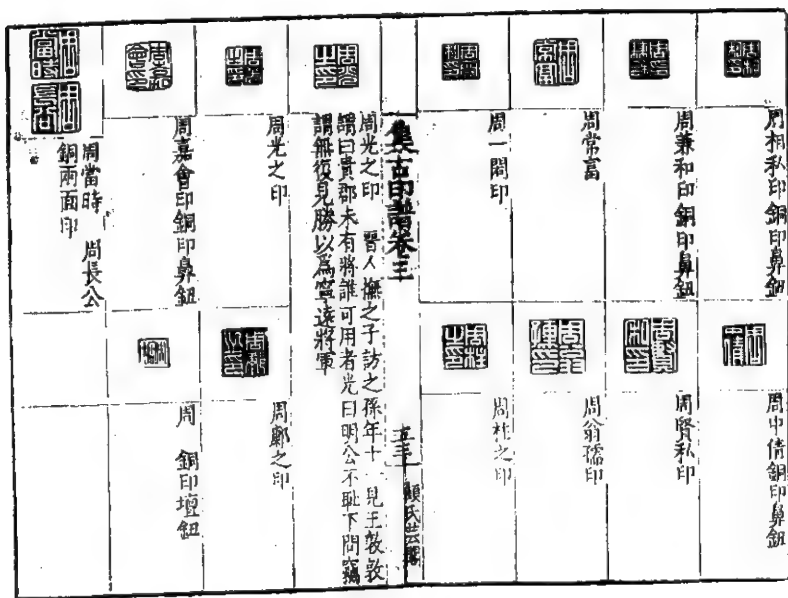 周相私印銅印鼻鈕
周中倩銅印鼻鈕
周兼和印銅印鼻鈕
周賢私印
周常富
周翁孺印
周一閣印
周柱之印
集古印譜卷三
五三
顧氏芸閣
周光之印　晉人撫之子訪之孫年十一見王敦敦
謂曰貴郡未有將誰可用者光曰明公不耻下問竊
謂無復見勝以爲寧遠將軍
周光之印
周鄭之印
周嘉會印銅印鼻鈕
周　銅印壇鈕
周當時　周長公
銅兩面印